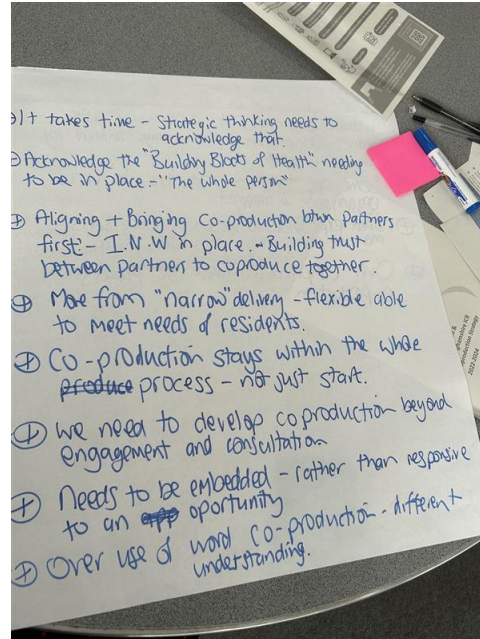 It takes time - Strategic thinking needs to
acknowledge that.
Acknowledge the "Building Blocks of Health" needing
to be in place - "The whole person"
Aligning + Bringing Co-production btwn partners
first - I.N.W in place. - Building trust
between partners to coproduce together.
More from "narrow" delivery - flexible able
to meet needs of residents.
Co-production stays within the whole
produce process - not just start.
we need to develop coproduction beyond
engagement and consultation
Needs to be embedded - rather than responsive
to an opp oportunity
Over use of word Co-production - different
understanding.
mshire ICB
production Strategy
2022-2024